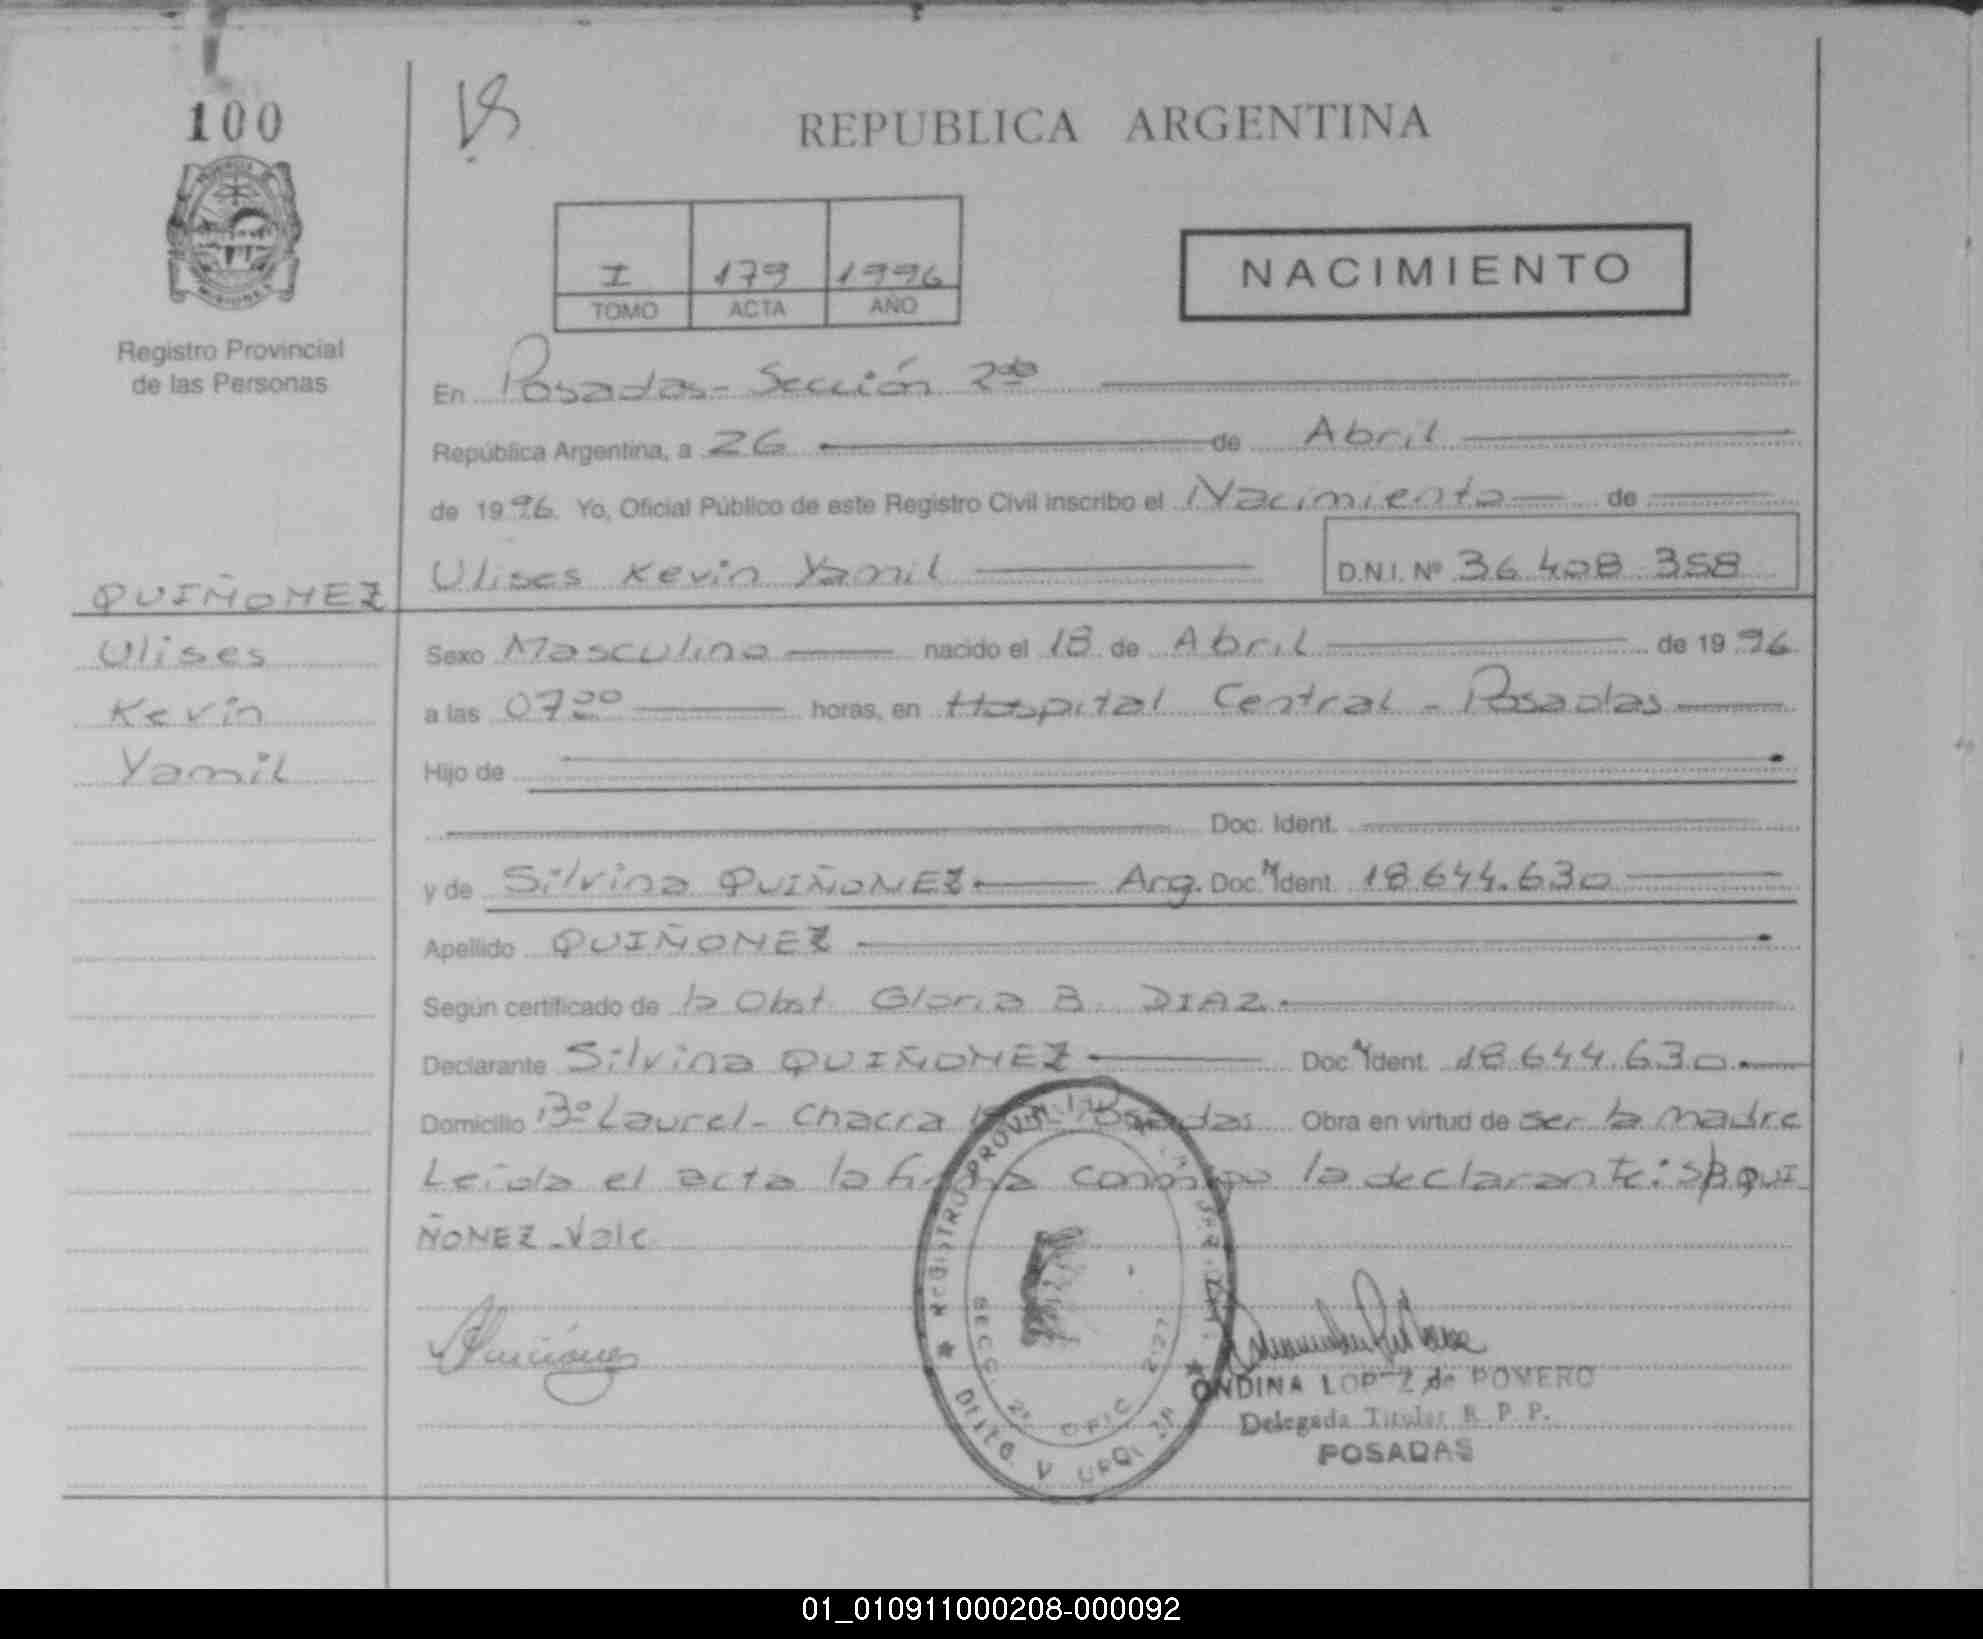 100
REPUBLICA ARGENTINA
I 179 1996
TOMO ACTA AÑO
NACIMIENTO
Registro Provincial
de las Personas
En Posadas - Sección 2da
República Argentina, a 26 de Abril
de 1996. Yo, Oficial Público de este Registro Civil inscribo el Nacimiento de
Ulises Kevin Yamil D.N.I. Nº 36 408 358
QUIÑONEZ
Ulises
Kevin
Yamil
Sexo Masculino nacido el 18 de Abril de 1996
a las 07 horas, en Hospital Central - Posadas
Hijo de
Doc. Ident.
y de Silvina QUIÑONEZ Arg. Doc. Ident. 18.644.630
Apellido QUIÑONEZ
Según certificado de la Obst. Gloria B. DIAZ
Declarante Silvina QUIÑONEZ Doc. Ident. 18.644.630
Domicilio Bº Laurel - Chacra Posadas Obra en virtud de ser la madre
Leída el acta la firma conmigo la declarante: QUI
ÑONEZ - Vale
REGISTRO PROVINCIAL
SECC. 2ª OFIC
ONDINA LOPEZ de ROMERO
Delegada Titular R. P. P.
POSADAS
01_010911000208-000092